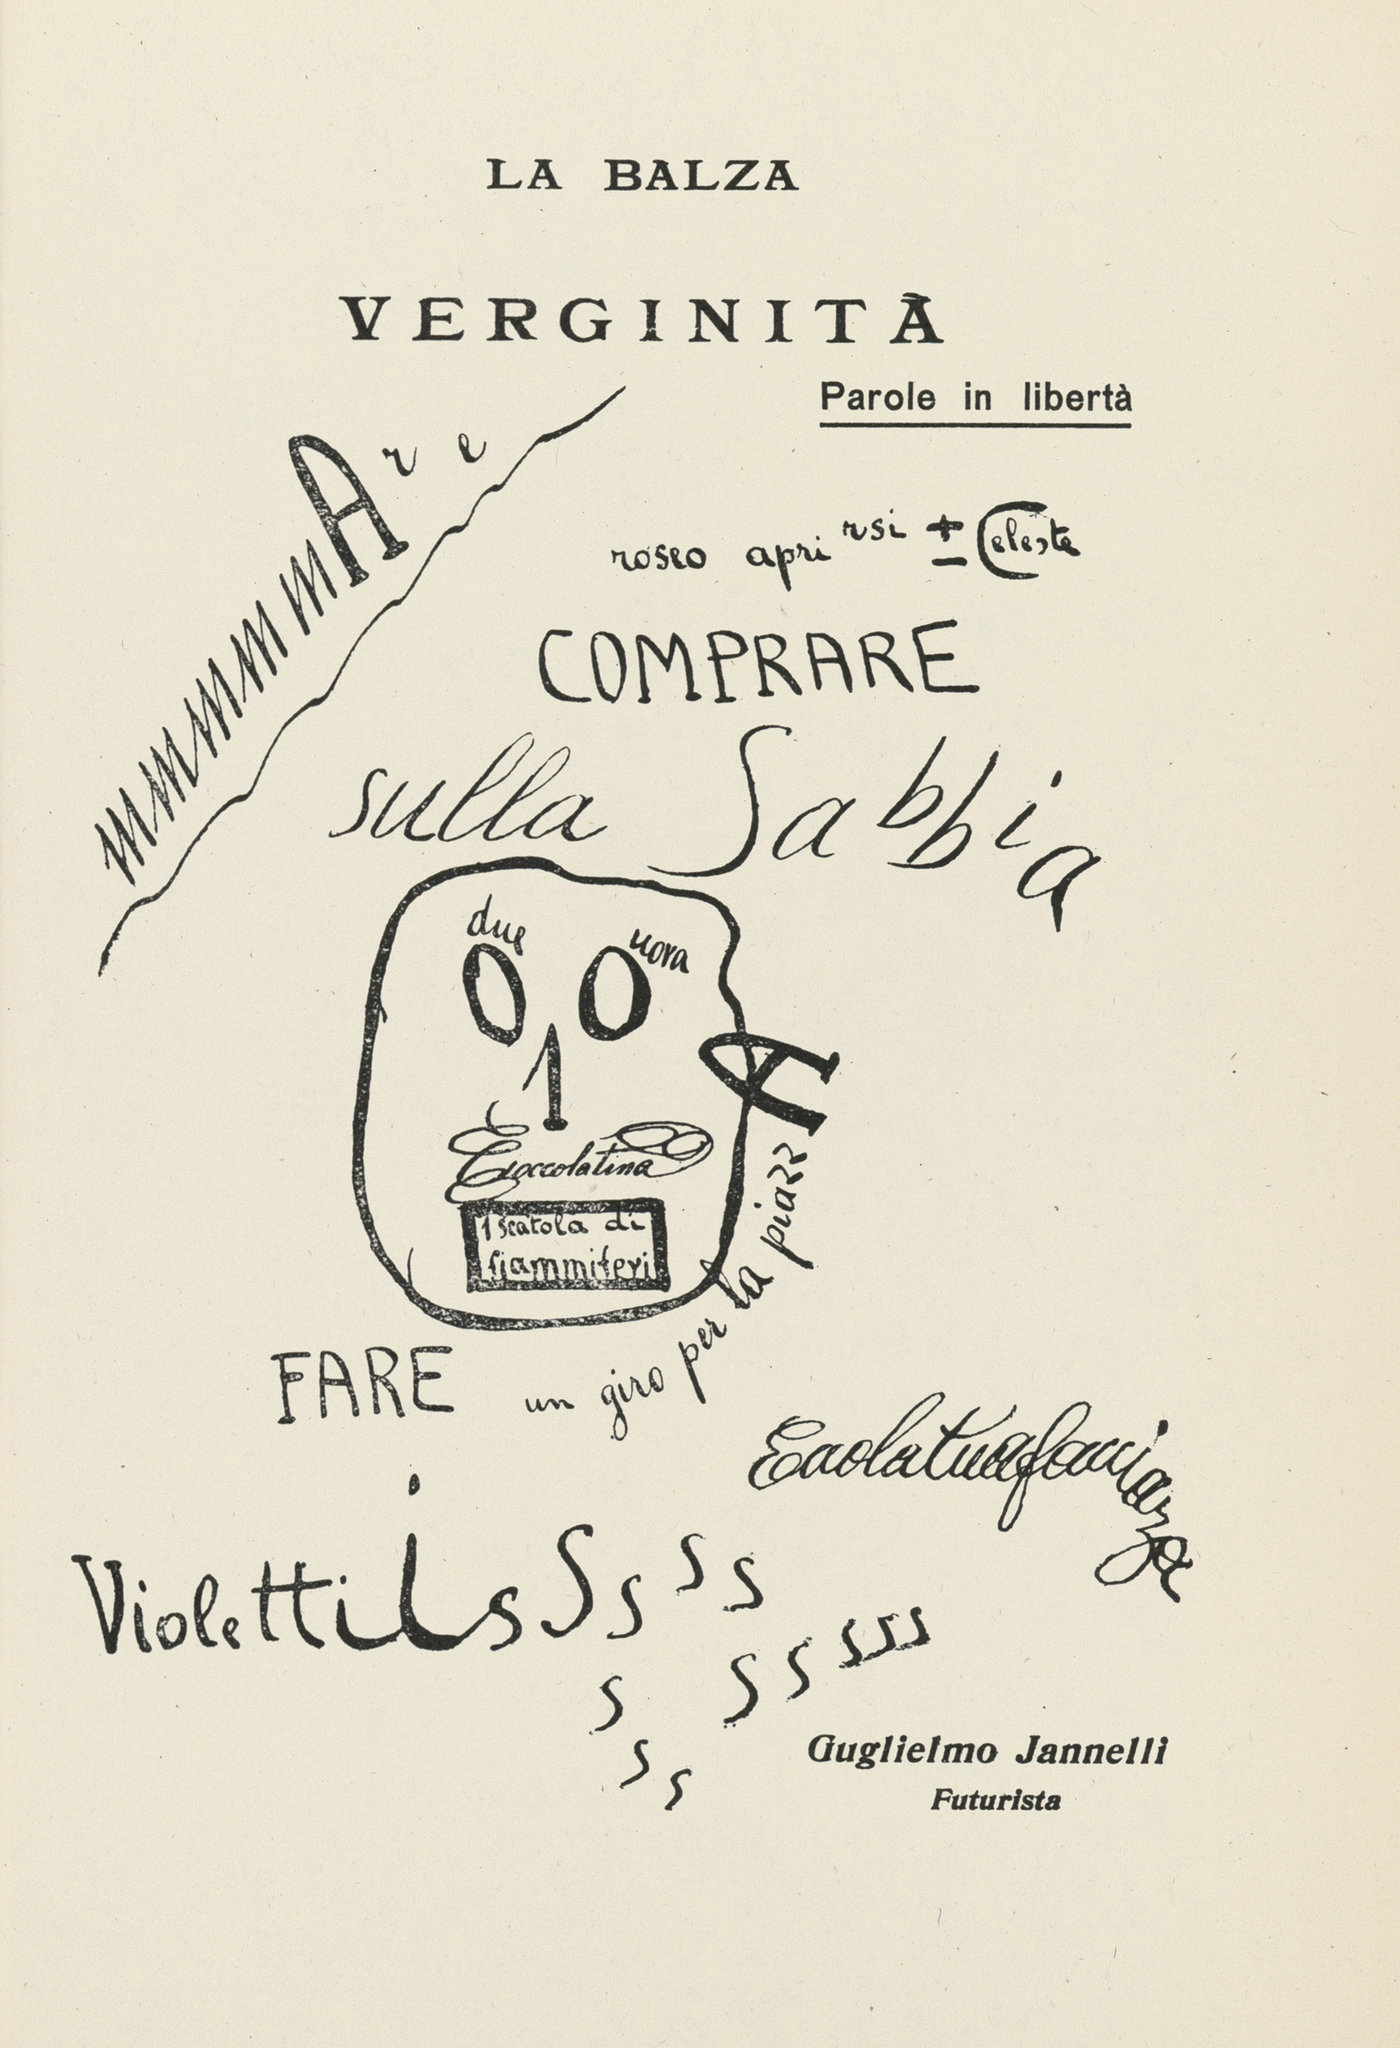 LA BALZA
VERGINITÀ
Parole in libertà
mmmmmmAre
roseo aprirsi ± Celeste
COMPRARE
sulla Sabbia
due uova
0 0
1
Cioccolatina
1 scatola di
fiammiferi
FARE un giro per la piazzA
Ecolatuafacciaza
ViolettiisSs s s
s s s s s s
s s s
Guglielmo Jannelli
Futurista